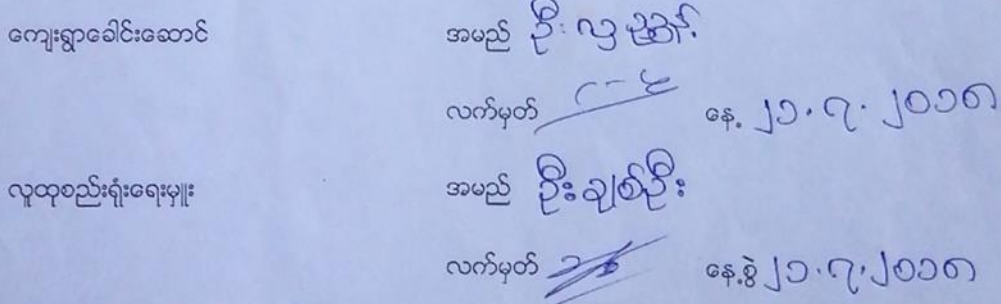 ကျေးရွာခေါင်းဆောင် အမည် ဦးလှညွန့်
လက်မှတ် နေ့ ၂၁.၇.၂၀၁၈
လူထုစည်းရုံးရေးမှူး အမည် ဦးချစ်ဦး
လက်မှတ် နေ့စွဲ ၂၁.၇.၂၀၁၈